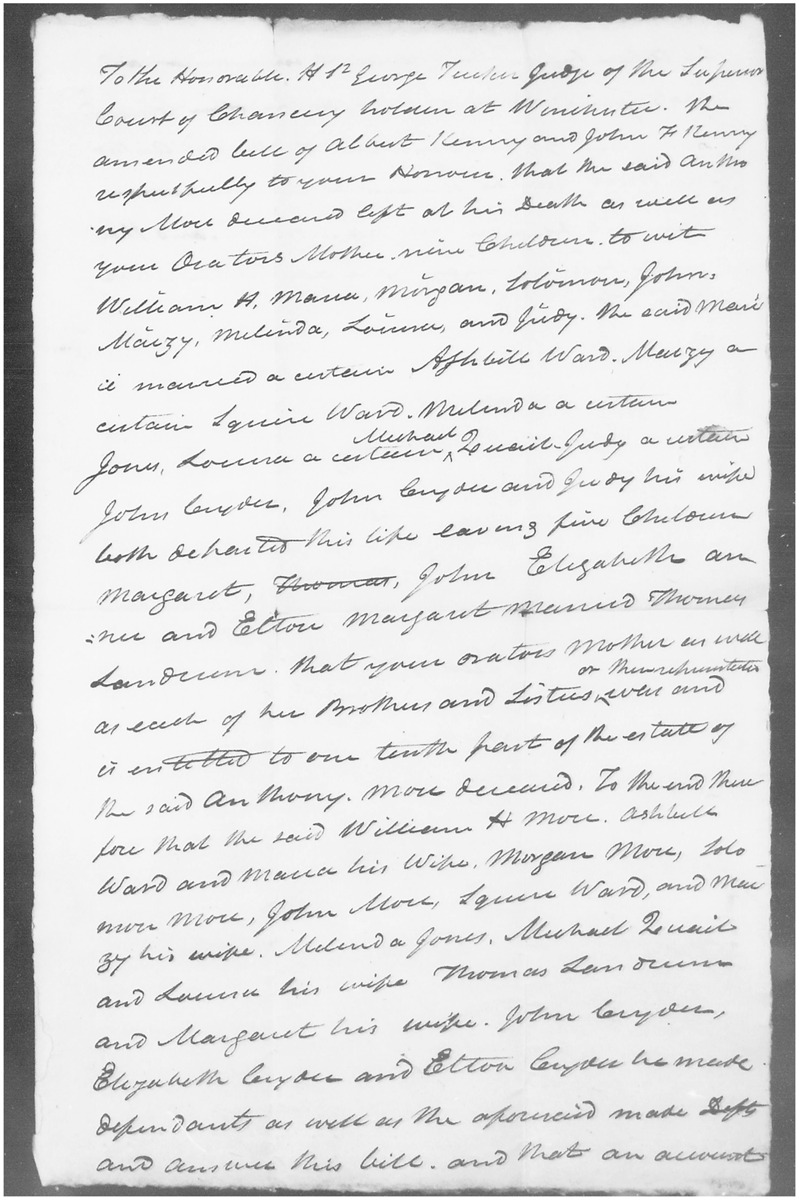 To the Honorable. H St George Tucker Judge of the Superior
Court of Chancery holden at Winchester. The
amended bill of Albert Kenny and John F Kenny
respectfully to your Honour. that the said Antho
ny More deceased left at his Death as well as
your Orators Mother. nine Children. to wit
William H, Maria, Morgan, Solomon, John,
Maizy, Melinda, Louisa, and Judy. The said Mari
a married a certain Ashbill Ward. Maizy a
certain Squire Ward. Melenda a certain
Jones, Louisa a certain Michael Quail Judy a certain
John Cryder, John Cryder and Judy his wife
both departed this life leaving five Children
Margaret, Thomas, John Elizabeth an
=ner and Elton Margaret married Thomas
Landrum. that your orators Mother as well
as each of her Brothers and Sisters, or their representatives were and
is entitled to one tenth part of the estate of
the said Anthony. More deceased. To the end there
fore that the said William H More. Ashbell
Ward and Maria his Wife. Morgan More, Solo
mon More, John More, Squire Ward, and Mai
zy his wife. Melenda Jones. Michael Quail
and Louisa his wife Thomas Landrum
and Margaret his wife. John Cryder,
Elizabeth Cryder and Elton Cryder be made
defendants as well as the aforesaid made Defts
and answer this bill. and that an account